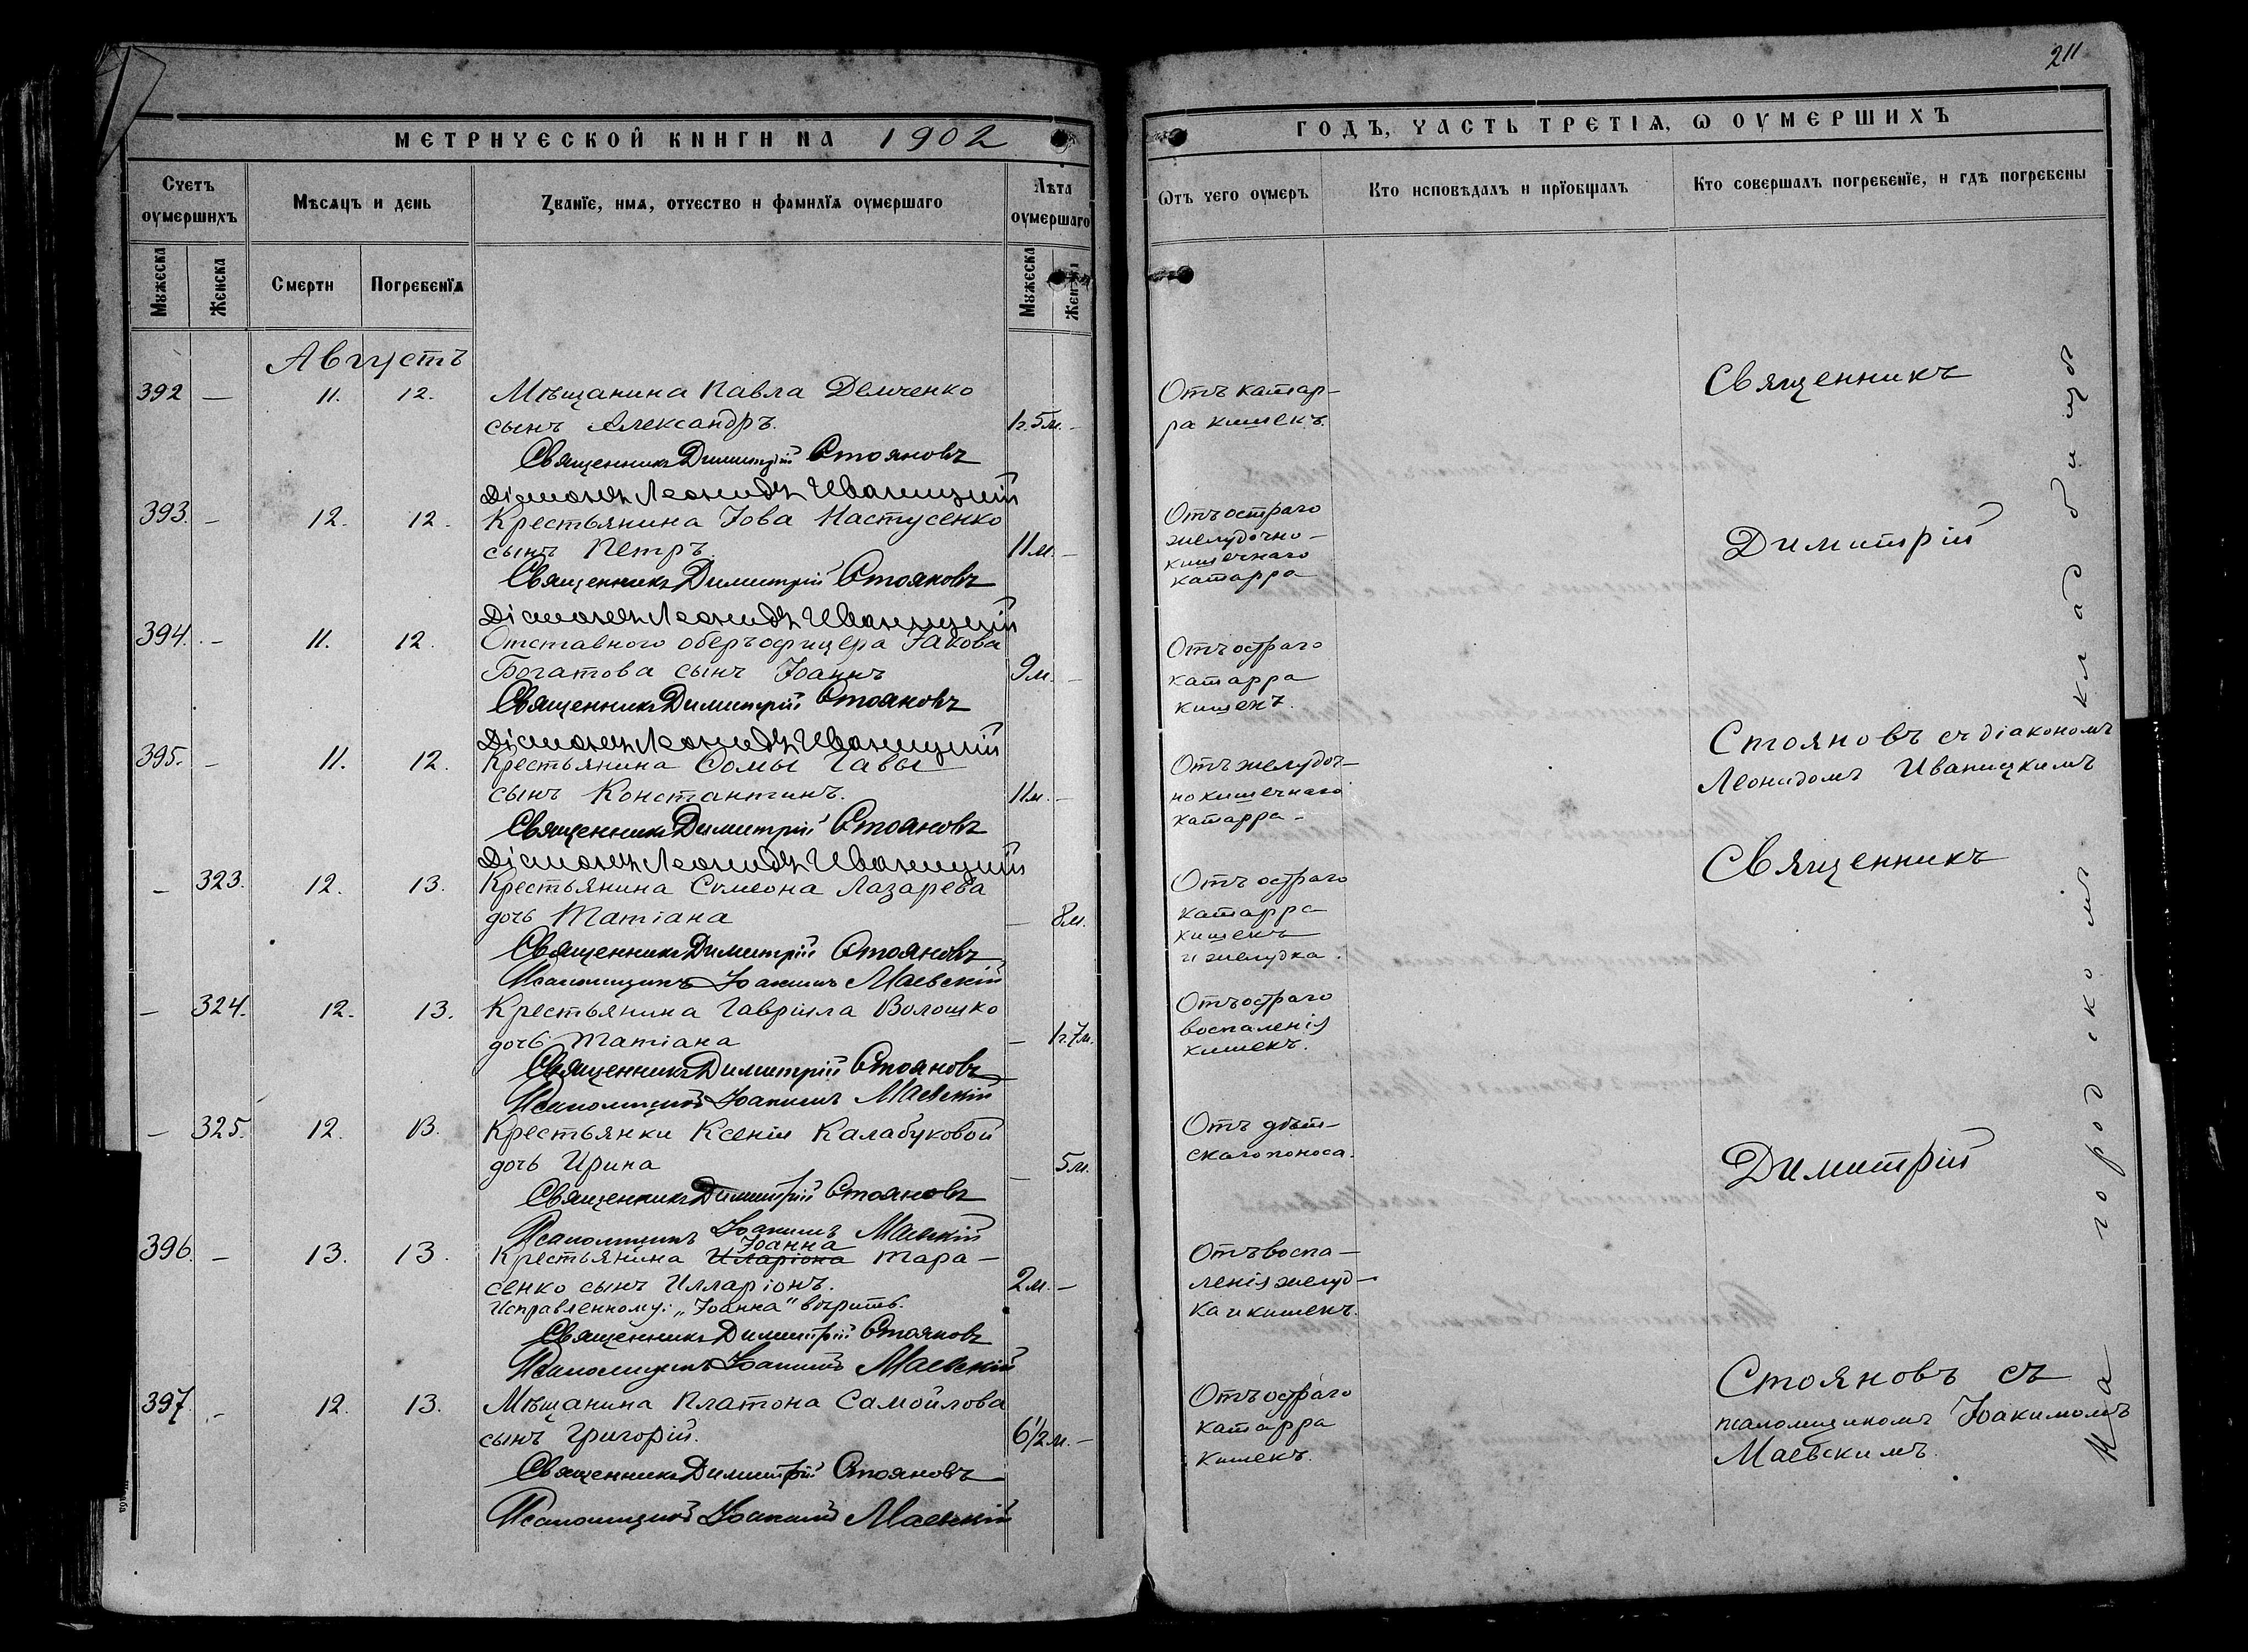 211
МЕТРИЧЕСКОЙ КНИГИ НА 1902
ГОДЪ, ЧАСТЬ ТРЕТІѦ, Ѡ ОУМЕРШИХЪ
Счетъ оумершихъ
Мѣсѧцъ и день
Званїе, имѧ, отчество и фамилїѧ оумершаго
Лѣта оумершаго
Ѿтъ чего оумеръ
Кто исповѣдалъ и прїобщалъ
Кто совершалъ погребенїе, и гдѣ погребены
Мужеска
Женска
Смерти
Погребенїѧ
Мужеска
Женска
Августъ
392 — 11. 12. Мѣщанина Павла Демченко
сынъ Александръ. 1г.5м. —
Отъ катар-
ра кишекъ.
Священникъ Димитрій Стояновъ
Діаконъ Леонидъ Иваницкій
393. — 12. 12. Крестьянина Іова Настусенко
сынъ Петръ. 11м. —
Отъ остраго
желудочно-
кишечнаго
катарра
Священникъ Димитрій Стояновъ
Діаконъ Леонидъ Иваницкій
394. — 11. 12. Отставного оберъофицера Іакова
Богатова сынъ Іоаннъ 9м. —
Отъ остраго
катарра
кишекъ.
Священникъ Димитрій Стояновъ
Діаконъ Леонидъ Иваницкій
395. — 11. 12. Крестьянина Ѳомы Гавы
сынъ Константинъ. 11м. —
Отъ желудоч-
но кишечнаго
катарра —
Священникъ Димитрій Стояновъ
Діаконъ Леонидъ Иваницкій
— 323. 12. 13. Крестьянина Симеона Лазарева
дочь Татіана — 8м.
Отъ остраго
катарра
кишекъ
и желудка.
Священникъ Димитрій Стояновъ
Псаломщикъ Іоакимъ Маевскій
— 324. 12. 13. Крестьянина Гавріила Волошко
дочь Татіана — 1г.7м.
Отъ остраго
воспаленія
кишекъ.
Священникъ Димитрій Стояновъ
Псаломщикъ Іоакимъ Маевскій
— 325. 12. 13. Крестьянки Ксеніи Калабуковой
дочь Ирина — 5м.
Отъ дѣт-
скаго поноса.
Священникъ Димитрій Стояновъ
Псаломщикъ Іоакимъ Маевскій
Іоанна
396. — 13. 13. Крестьянина Иларіона Тара-
сенко сынъ Илларіонъ. 2м. —
Исправленному: „Іоанна" вѣрить.
Отъ воспа-
ленія желуд-
ка и кишекъ.
Священникъ Димитрій Стояновъ
Псаломщикъ Іоакимъ Маевскій
397. — 12. 13. Мѣщанина Платона Самойлова
сынъ Григорій. 6½м. —
Отъ остраго
катарра
кишекъ.
Священникъ Димитрій Стояновъ
Псаломщикъ Іоакимъ Маевскій
Священникъ
Димитрій
Стояновъ съ діакономъ
Леонидомъ Иваницкимъ
Священникъ
Димитрій
Стояновъ съ
псаломщикомъ Іоакимомъ
Маевскимъ.
На городскомъ кладбищѣ